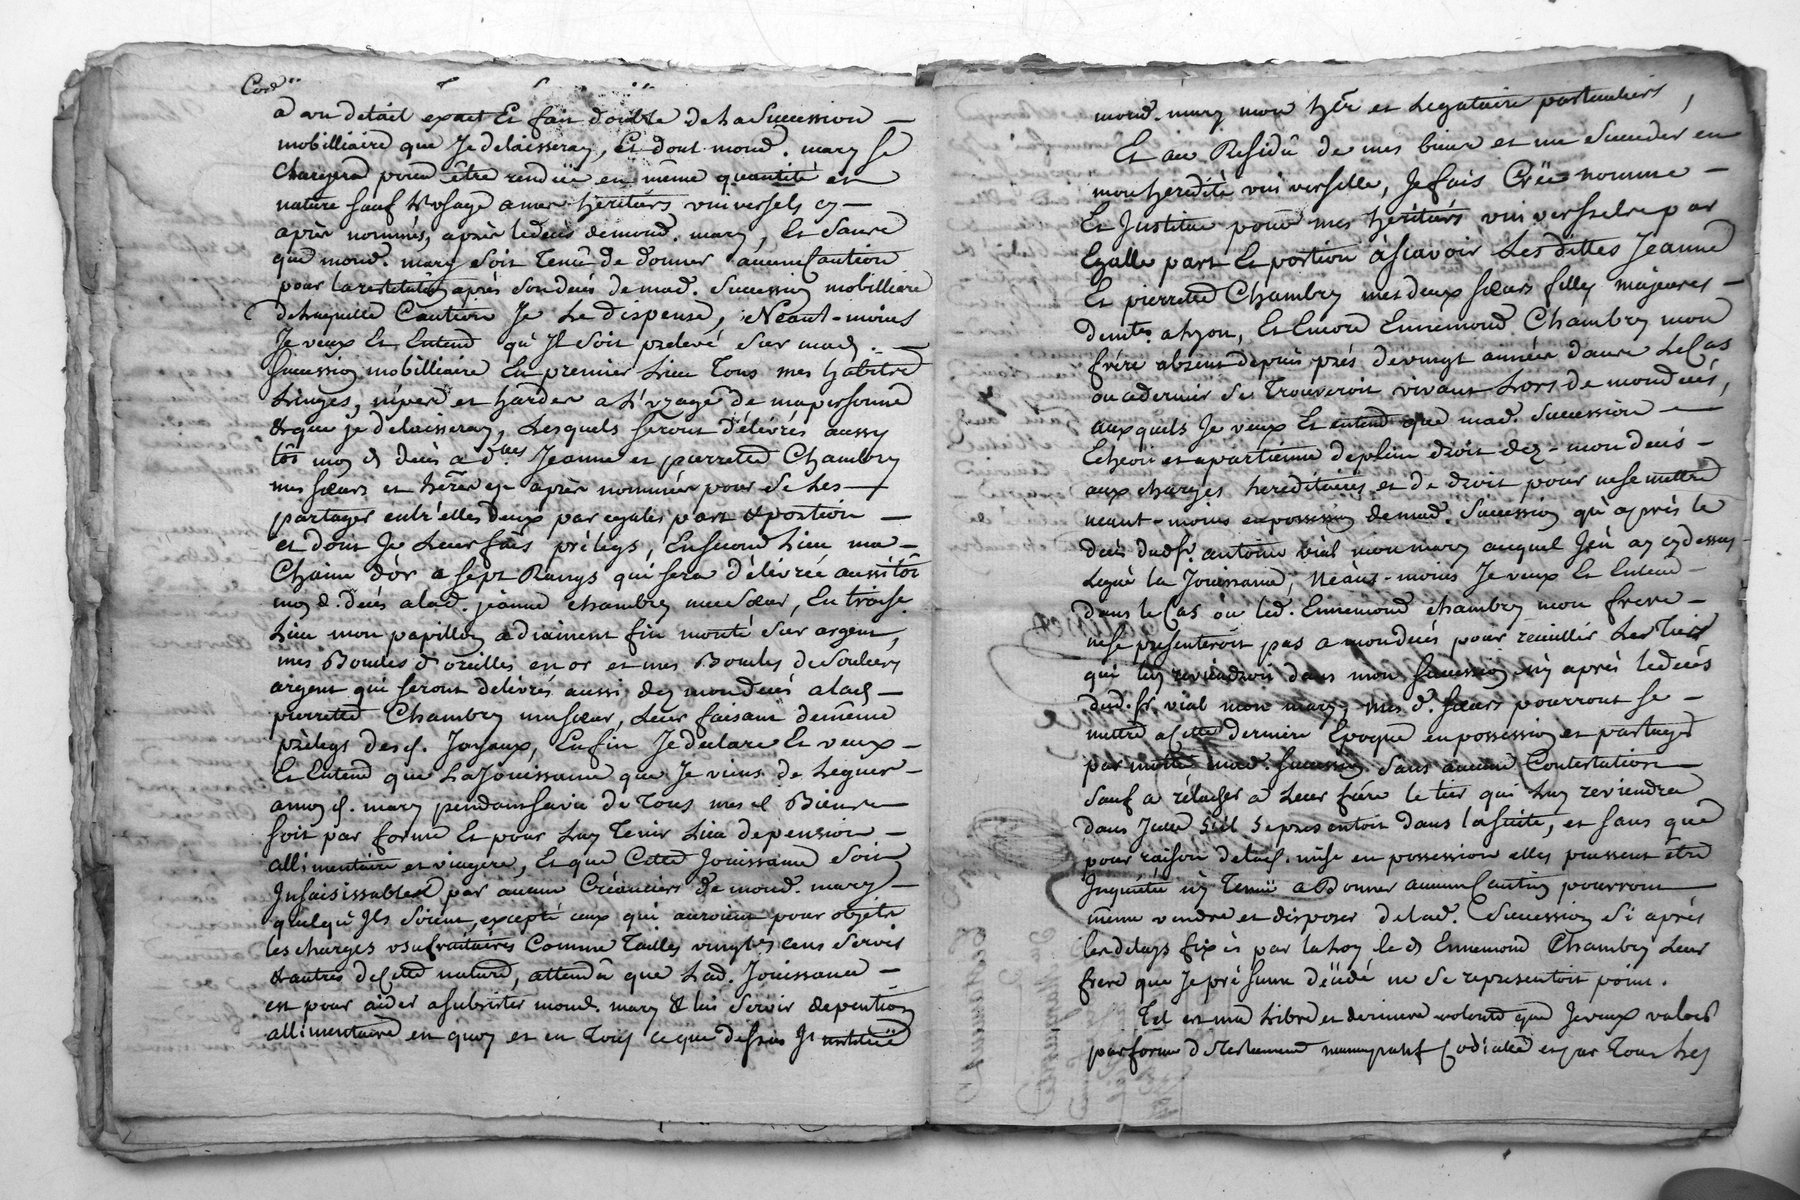 a un detail exact Et fait double de La Succession
mobilliaire que Je delaisseray, Et dont mond. mary se
Chargera pour être rendüe en même quantité et
nature sauf L'usage a mes heritiers universels cy
après nommés, après ledecès demond. mary, Et Sans
que mond. mary Soit Tenû de donner aucune Caution
pour larestitution après Sondecés de mad. Succession mobilliaire
de Laquelle Caution Je Le dispense, Néant-moins
Je veux Et Entend qu'Il Soit prelevé Sur mad.
Succession mobilliaire En premier Lieu Tous mes habits
Linges, nipes et hardes a L'usage de mapersonne
& que je delaisseray, Lesquels seront délivrés aussy
tôt mon d. decés a d.lles Jeanne et pierrette Chambry
mes sœurs et hér.es cy après nommées pour Se Les
partager entr'elles deux par egales part & portion
et dont Je Leur fais prélegs, En second Lieu ma
Chaine d'or a sept Rangs qui sera délivrée aussitôt
mon d. decés alad. jeanne chambry ma Sœur, En troise.
Lieu mon papillon adiament fin monté Sur argent,
mes Boucles d'oreilles en or et mes Boucles de Souliers
argent qui seront delivrés aussi dez mondecés alad.
pierrette Chambry ma sœur, Leur faisant demême
prélegs desd. Joyaux, Enfin Je declare Et veux
Et Entend que La Jouissance que Je viens de Leguer
amon d. mary pendant savie de Tous mes d. Biens
soit par forme Et pour Luy Tenir Lieu depension
allimentaire et viagere, Et que Cette Jouissance Soit
Insaisissable par aucun Créanciers de mond. mary
quelqu'Ils Soient, excepté ceux qui auroient pour objets
les charges usufruitaires Comme Tailles vingt.es cens Servis
& autres de Cette nature, attendû que Lad. Jouissance
est pour aider asubsister mond. mary & lui Servir depention
allimentaire en quoy et en Tout ce que dessus Je institüe
mond. mary mon hér. et Legataire particuliers,
Et au Residû de mes biens et me Succeder en
mon heredité universelle, Je fais Crée nomme
Et Institue pour mes heritiers universels par
Egalle part Et portion àscavoir Les dittes Jeanne
Et pierrette Chambry mes deux sœurs filles majeures
dem.tes a Lyon, Et Encore Ennemond Chambry mon
frére absent depuis prés devingt années dans Le Cas
ou cedernier Se Trouveroit vivant Lors de mondecés,
auxquels Je veux Et entend que mad. Succession
Echeoit et apartienne deplein droit dez-mondecés
aux charges hereditaires et de droit pour nesemettre
neant-moins enpossession demad. Succession qu'après le
decés dudsr. antoine vial monmary auquel J'en ay cydessus
Legué la Jouissance, Néant-moins Je veux Et Entend
dans le Cas où led. Ennemond chambry mon frere
nese presenteroit pas a mondecés pour receuillir Le Tiers
qui luy reviendroit dans mon Succession ny après ledecés
dud. sr. vial mon mary, mes d. sœurs pourront se
mettre aCette derniere Epoque enpossession et partager
par moitié mad. Succession Sans aucune Contestation
Sauf a rélacher a Leur frére le tier qui Luy reviendra
dans Icelle S'il Sepresentoit dans lasuite, et sans que
pour raison delad. mise en possession elles puissent être
Inquiétées ny Tenü aDonner aucune Caution pourront
même vendre et disposer delad. Succession Si après
les delays fixés par la Loy le d. Ennemond Chambry Leur
frere que Je présume décédé ne Se representoit point.
Tel est ma Libre et derniere volonté que Jeveux valoir
parforme deTestament nuncupatif Codicille et par Tous Les